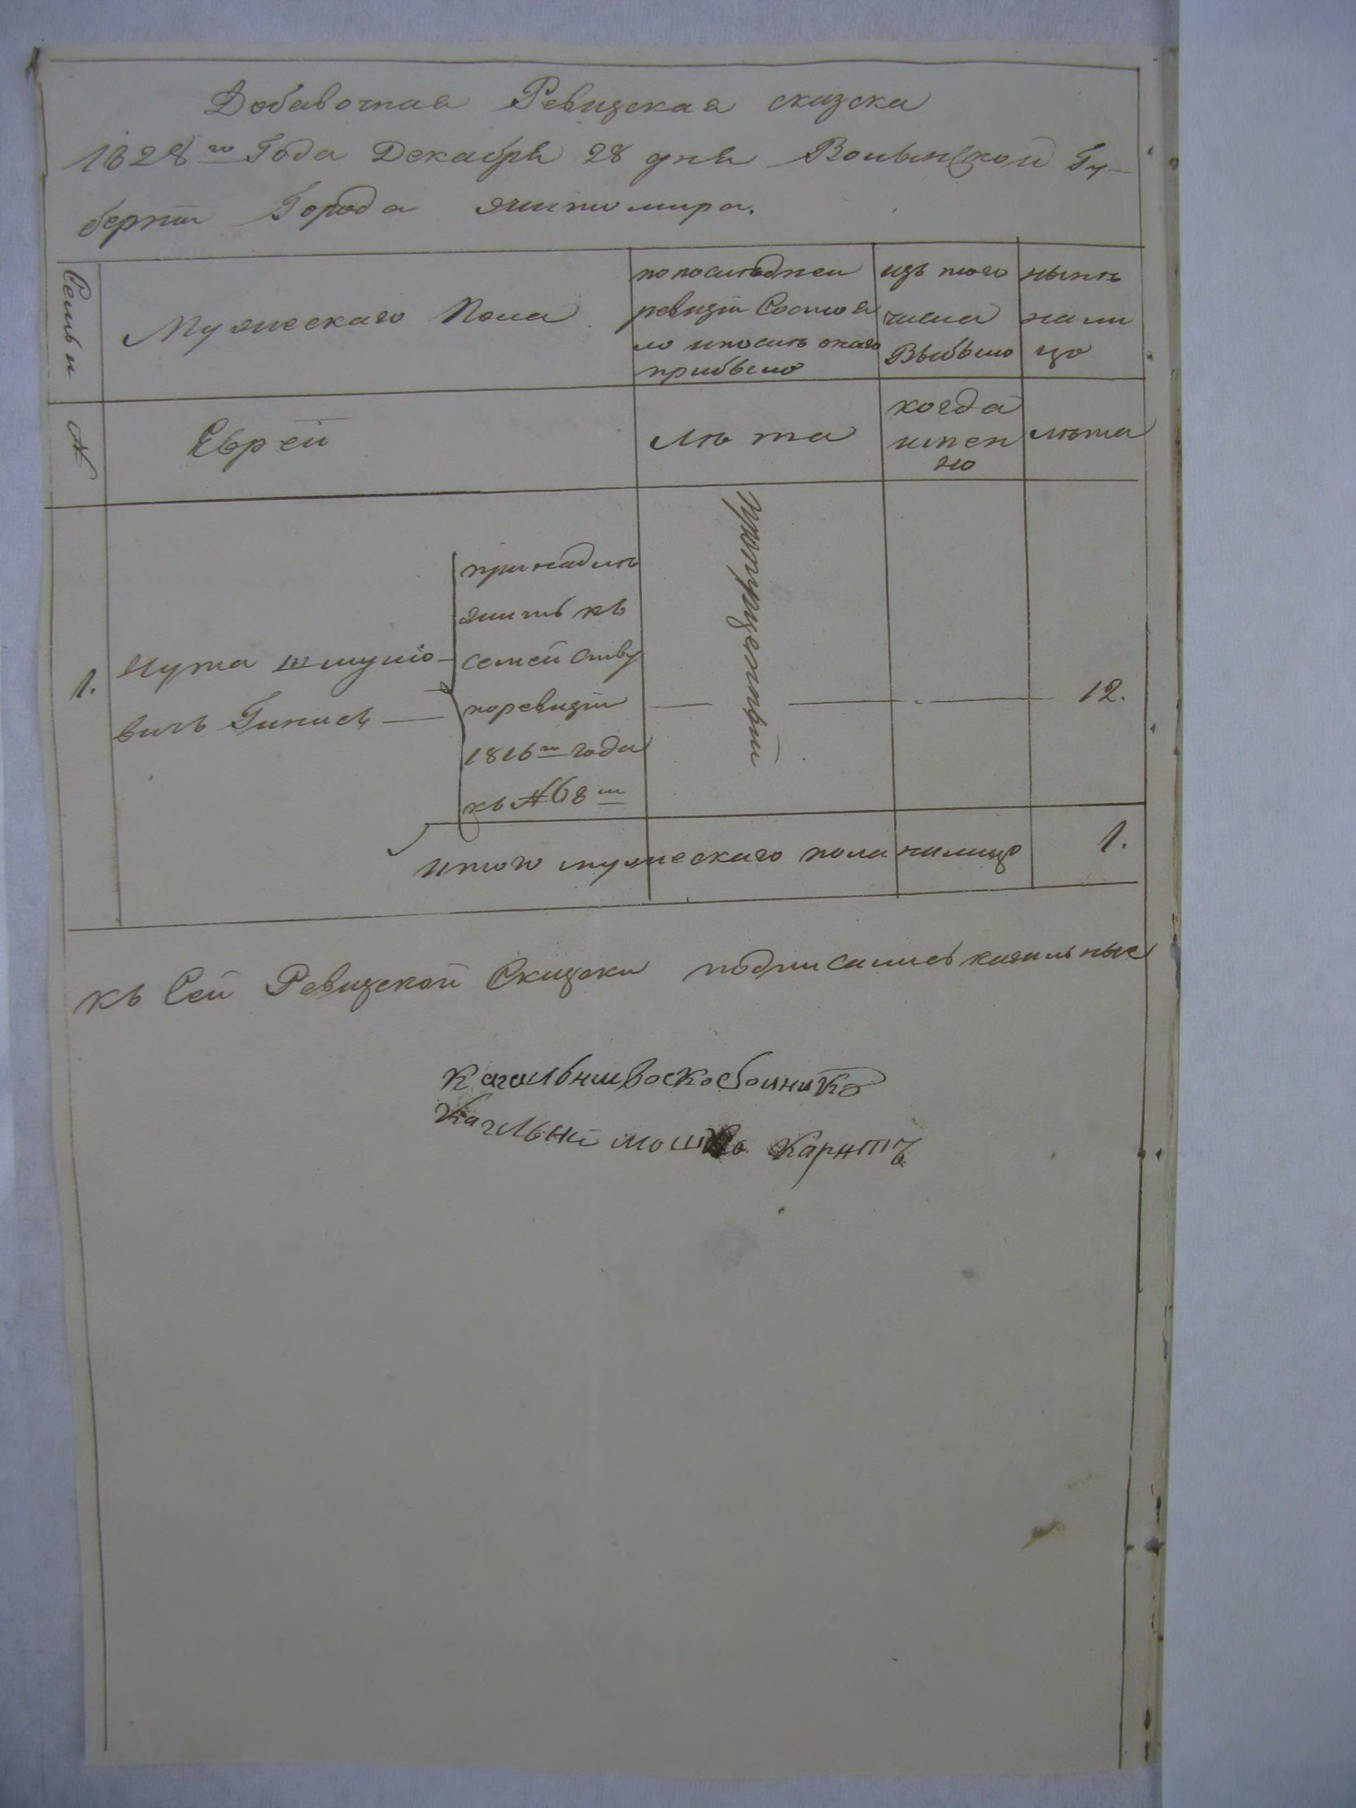 Добавочная Ревизская сказка
1828го Года Декабря 28 дня Волынской Гу-
бернии Города Житомира.
Семьи
Мужескаго Пола
по последней
ревизии Состоя
ло и после оного
прибыло
изъ того
числа
Выбыло
ныне
на ли
цо
№
Еврей
Лета
когда
имен
но
лета
1.
Нута Шмуліо-
вичъ Гинисъ
принадле
житъ къ
семейству
по ревизіи
1816го года
къ №68му
пропущенный
12.
Итого мужескаго пола налицо 1.
къ Сей Ревизской Скизски подписались кагальные
Кагальни Воскобоиникъ
Кагльни мошко